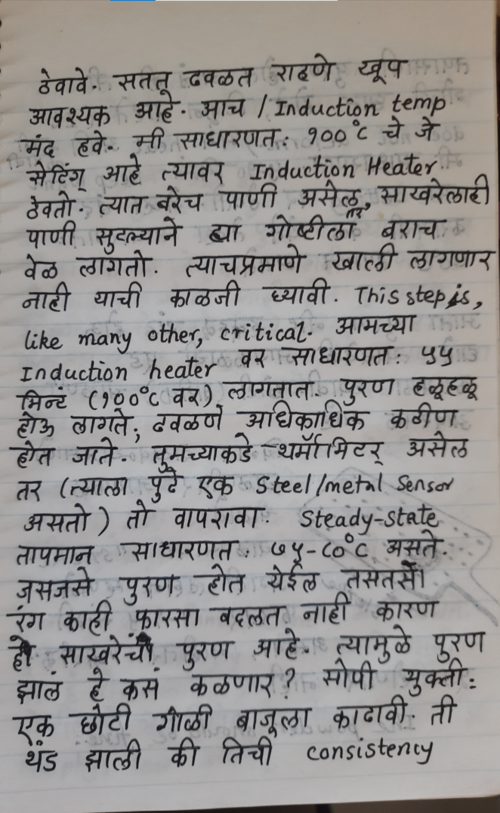 ठेवावे. सतत ढवळत राहणे खूप
आवश्यक आहे. आच / Induction temp
मंद हवे. मी साधारणत: १००°C चे जे
सेटिंग् आहे त्यावर Induction Heater
ठेवतो. त्यात बरेच पाणी असेल तर, साखरेलाही
पाणी सुटल्याने ह्या गोष्टीला बराच
वेळ लागतो. त्याचप्रमाणे खाली लागणार
नाही याची काळजी घ्यावी. This step is,
like many other, critical. आमच्या
Induction heater वर साधारणत: ५५
मिन्टं (१००°C वर) लागतात. पुरण हळूहळू
होऊ लागते; ढवळणे अधिकाधिक कठीण
होत जाते. तुमच्याकडे थर्मामिटर् असेल
तर (त्याला पुढे एक Steel/metal Sensor
असतो) तो वापरावा. Steady-state
तापमान साधारणत: ७५-८०°C असते.
जसजसे पुरण होत येईल तसतसा
रंग काही फारसा बदलत नाही कारण
हे साखरेचे पुरण आहे. त्यामुळे पुरण
झालं हे कसं कळणार? सोपी युक्ती:
एक छोटी गोळी बाजूला काढावी. ती
थंड झाली की तिची consistency